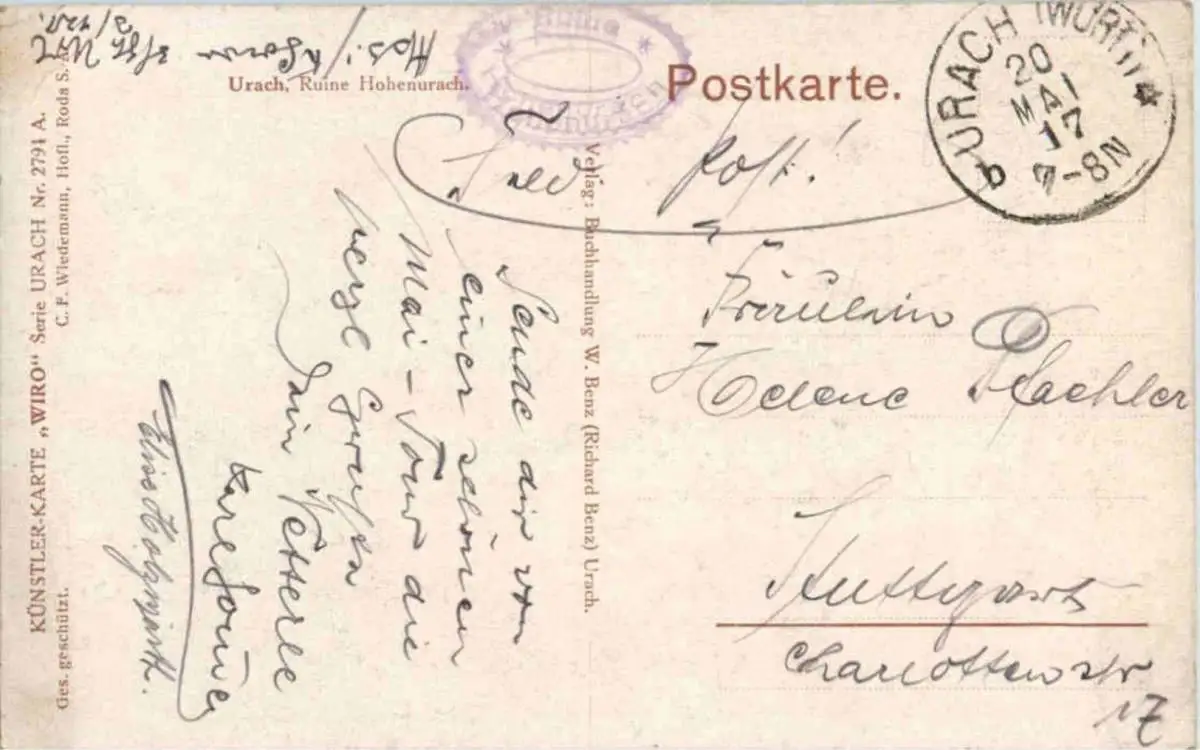 Urach, Ruine Hohenurach.
Postkarte.
Ruine
URACH (WÜRTT) *
20
MAI
17
7-8N
b
Feldpost!
Fräulein
Helene
Stuttgart
Charlottenstr
17
Sende dir von
einer schönen
Mai-Tour die
herzl
Dein Vetterle
Karl
Verlag: Buchhandlung W. Benz (Richard Benz) Urach.
KÜNSTLER-KARTE „WIRO" Serie URACH Nr. 2791 A.
C. F. Wiedemann, Hofl., Roda S. A.
Ges. geschützt.